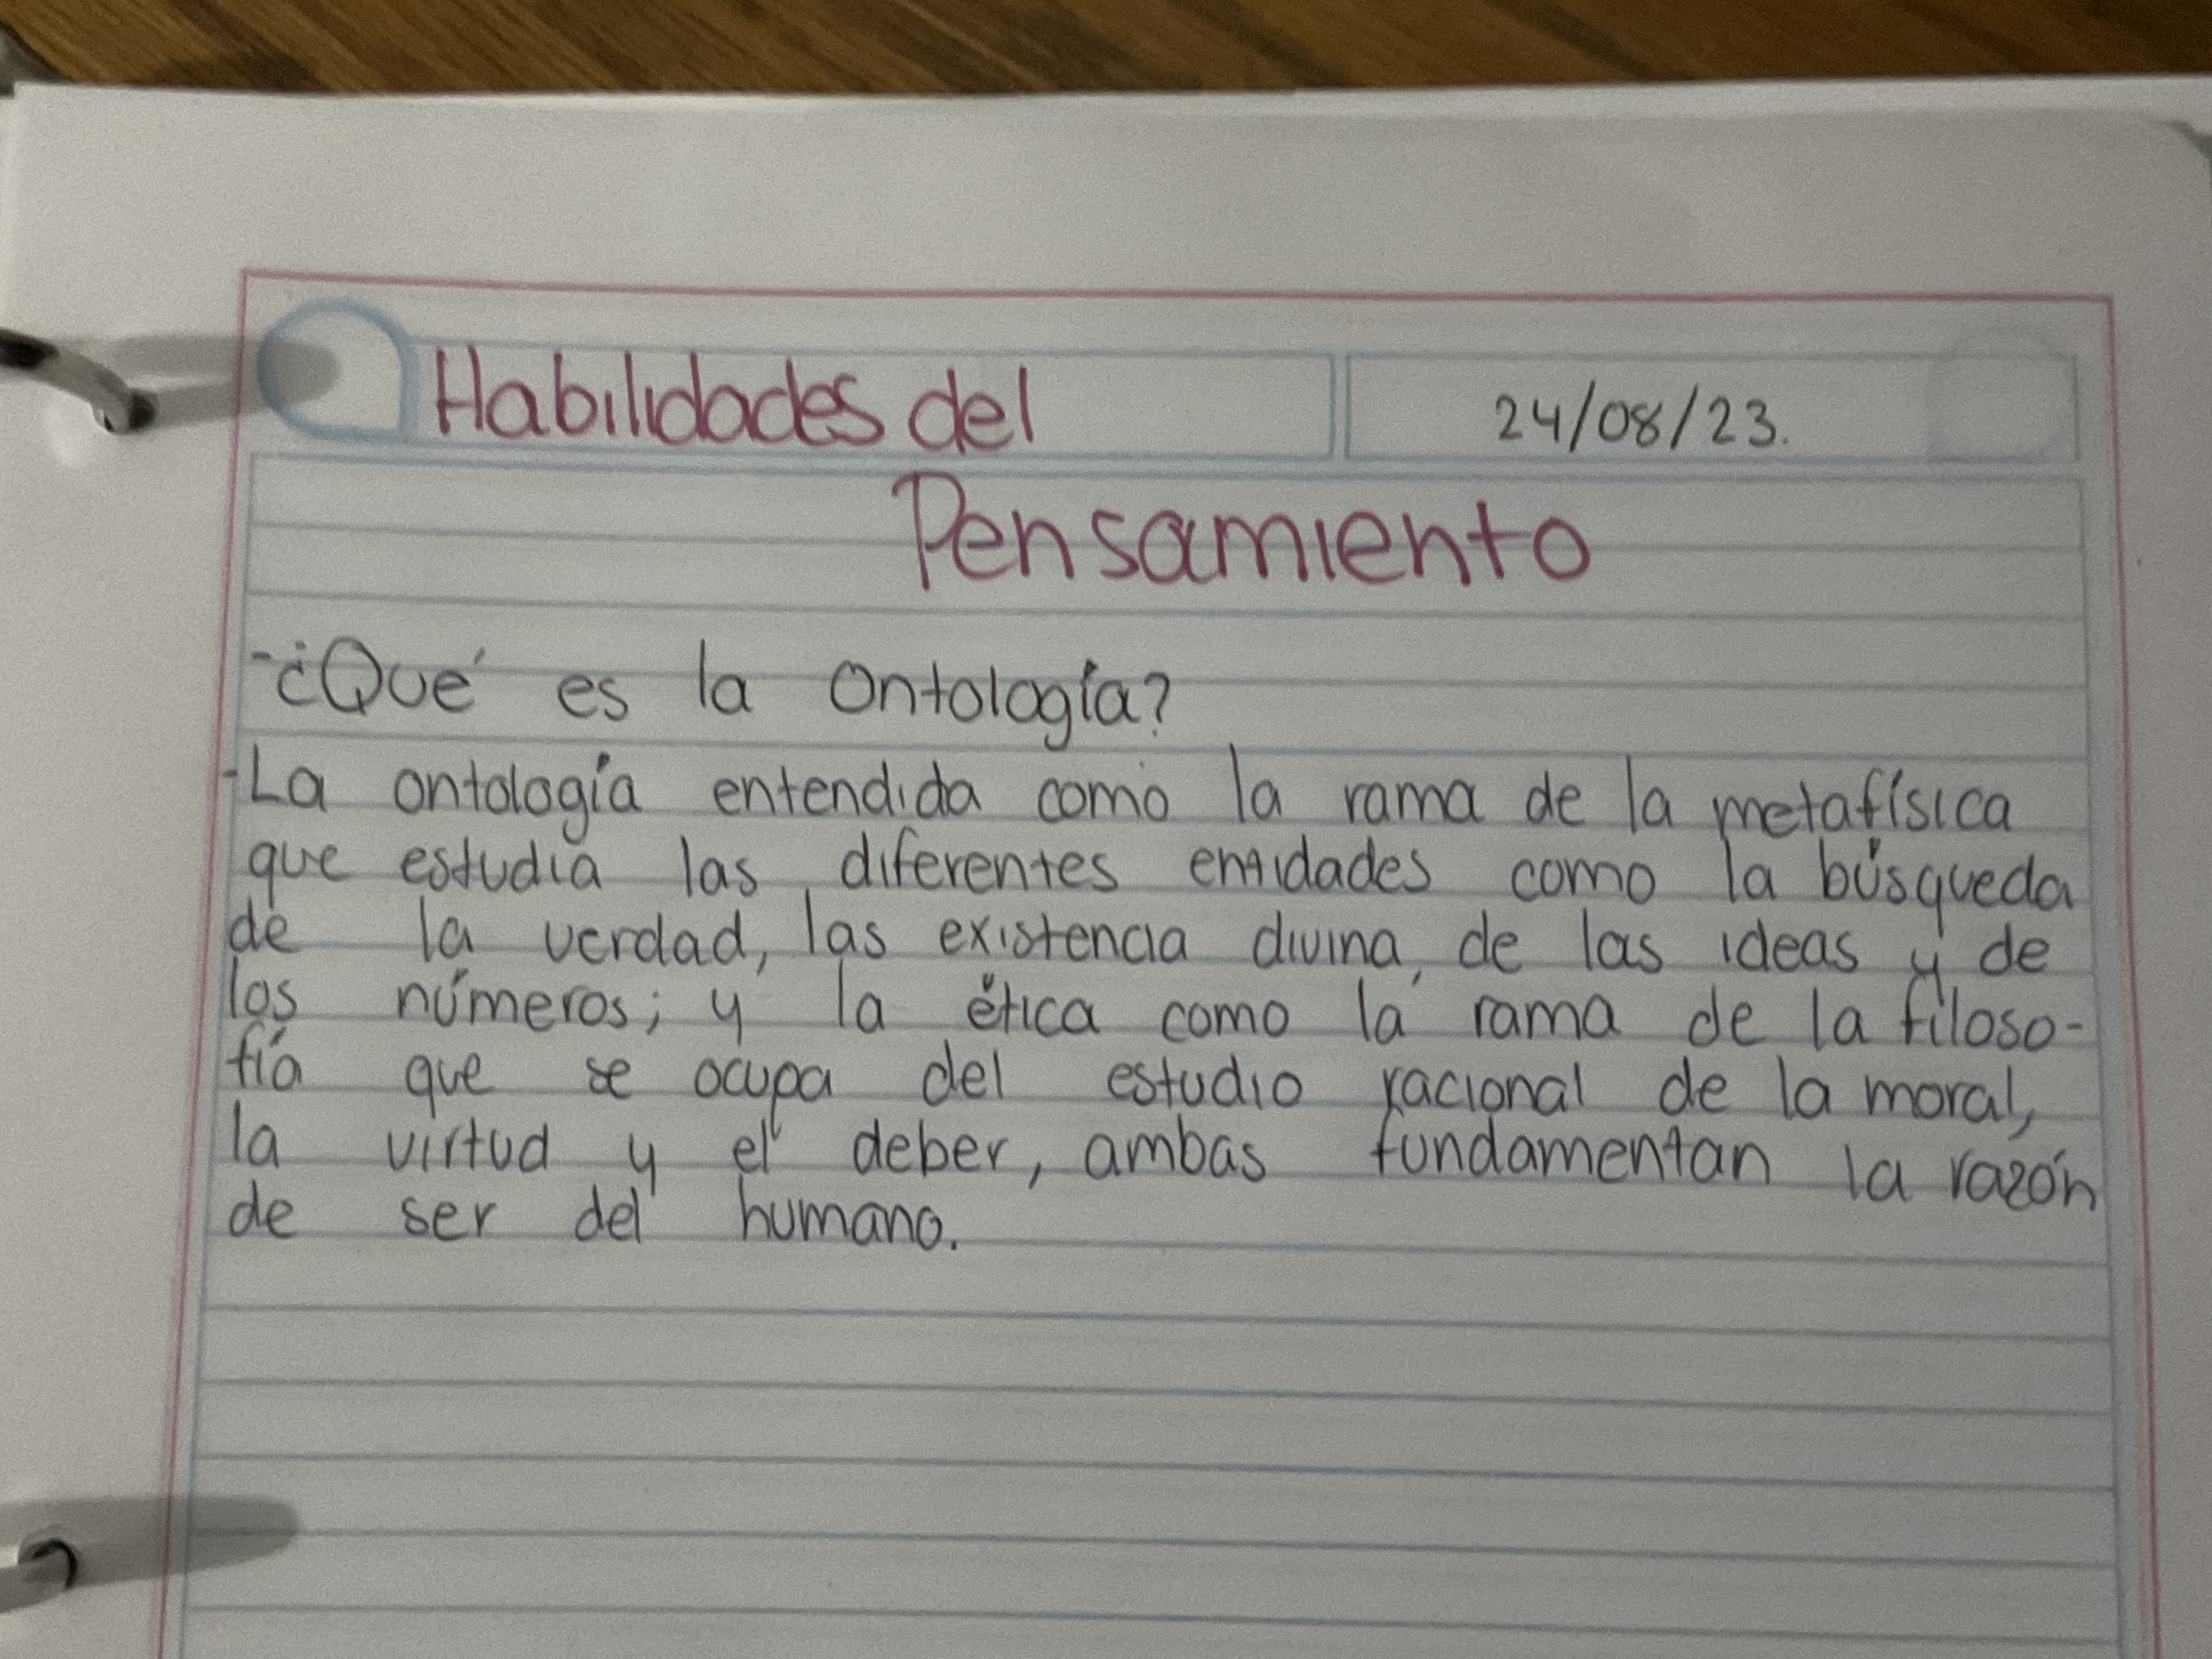 Habilidades del
24/08/23.
Pensamiento
-¿Qué es la Ontología?
-La ontología entendida como la rama de la metafísica
que estudia las diferentes entidades como la búsqueda
de la verdad, las existencia divina, de las ideas y de
los números; y la ética como la rama de la filoso-
fía que se ocupa del estudio racional de la moral,
la virtud y el deber, ambas fundamentan la razón
de ser del humano.